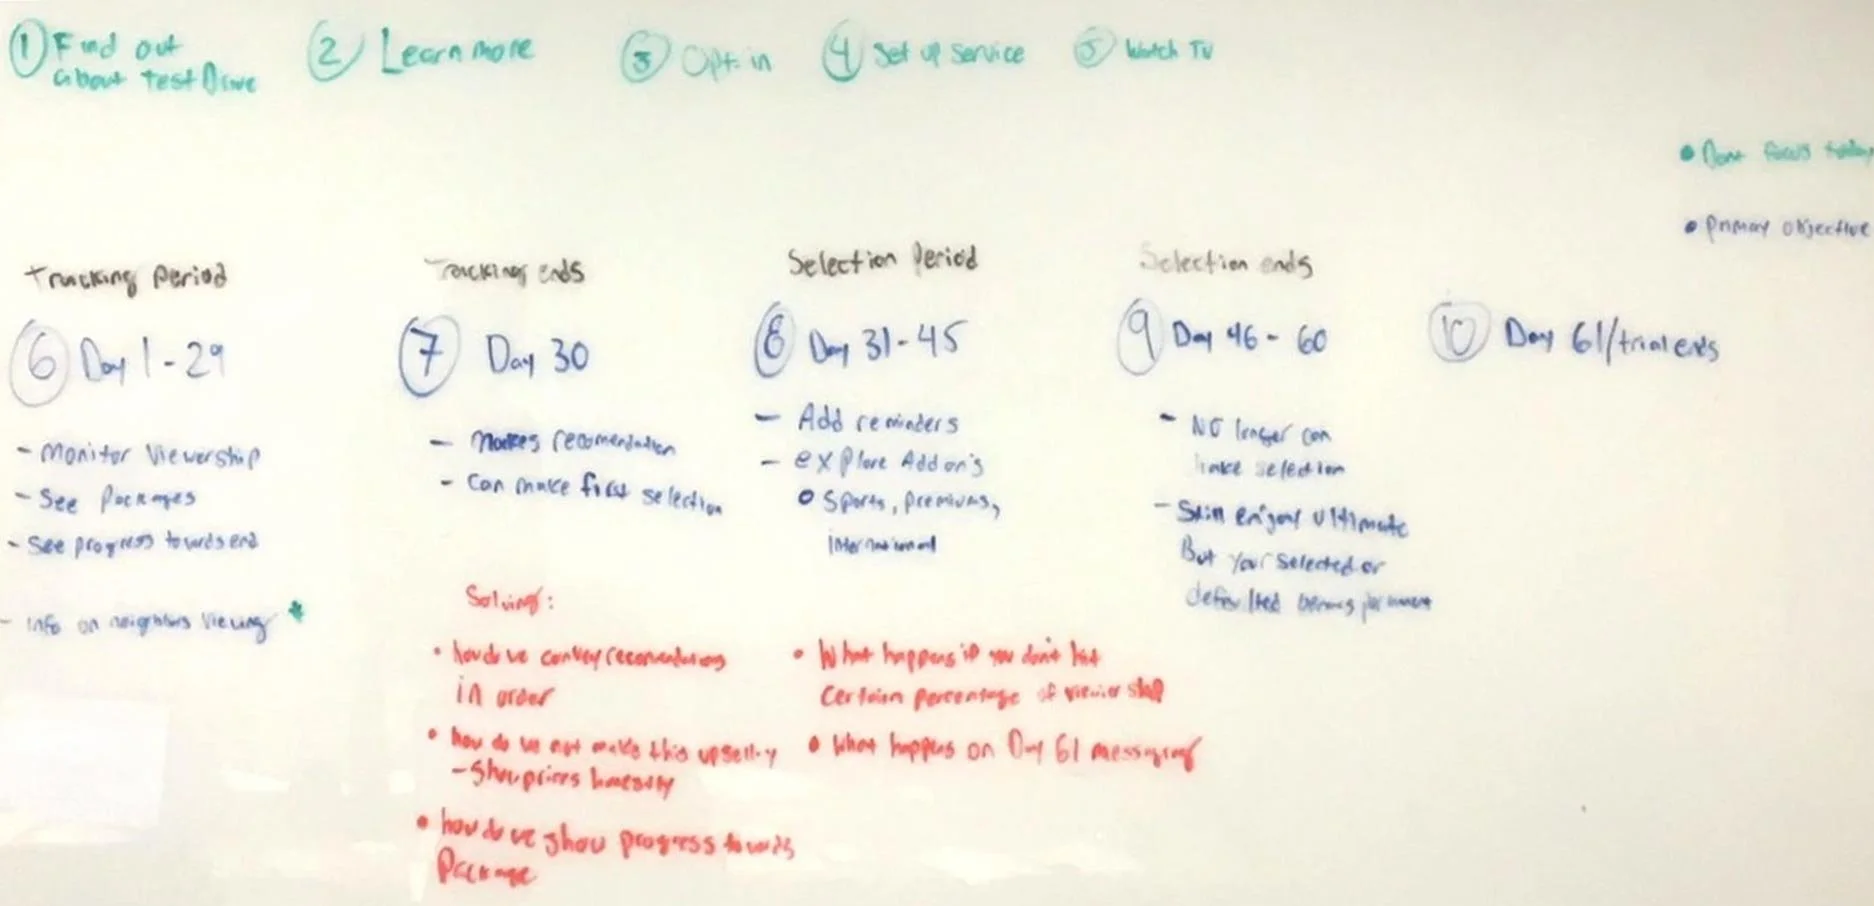 ① Find out
about Test Drive
② Learn more
③ Opt in
④ Set up service
⑤ Watch TV
• Dont focus today
• Primary objective
Tracking Period
⑥ Day 1-29
- Monitor Viewership
- See Packages
- See progress towards end
- Info on neighbors viewing *
Tracking ends
⑦ Day 30
- Makes recomendation
- Can make first selection
Selection Period
⑧ Day 31-45
- Add reminders
- explore Add on's
o Sports, premiums,
international
Selection ends
⑨ Day 46 - 60
- No longer can
make selection
- Still enjoy Ultimate
But your selected or
defaulted becomes permanent
⑩ Day 61/trial ends
Solving:
• how do we convey recomendations
in order
• how do we not make this upselly
- Show prices honestly
• how do we show progress towards
Package
• What happens if you don't hit
Certain percentage of viewership
• What happens on Day 61 messaging